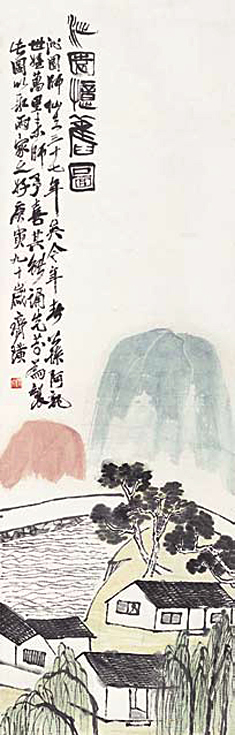 沁園憶舊圖
沁園師仙去三十七年矣今年春公孫阿龍
世姪萬里來師予喜其能誦先芬為製
此圖以永兩家之好庚寅九十歲齊璜